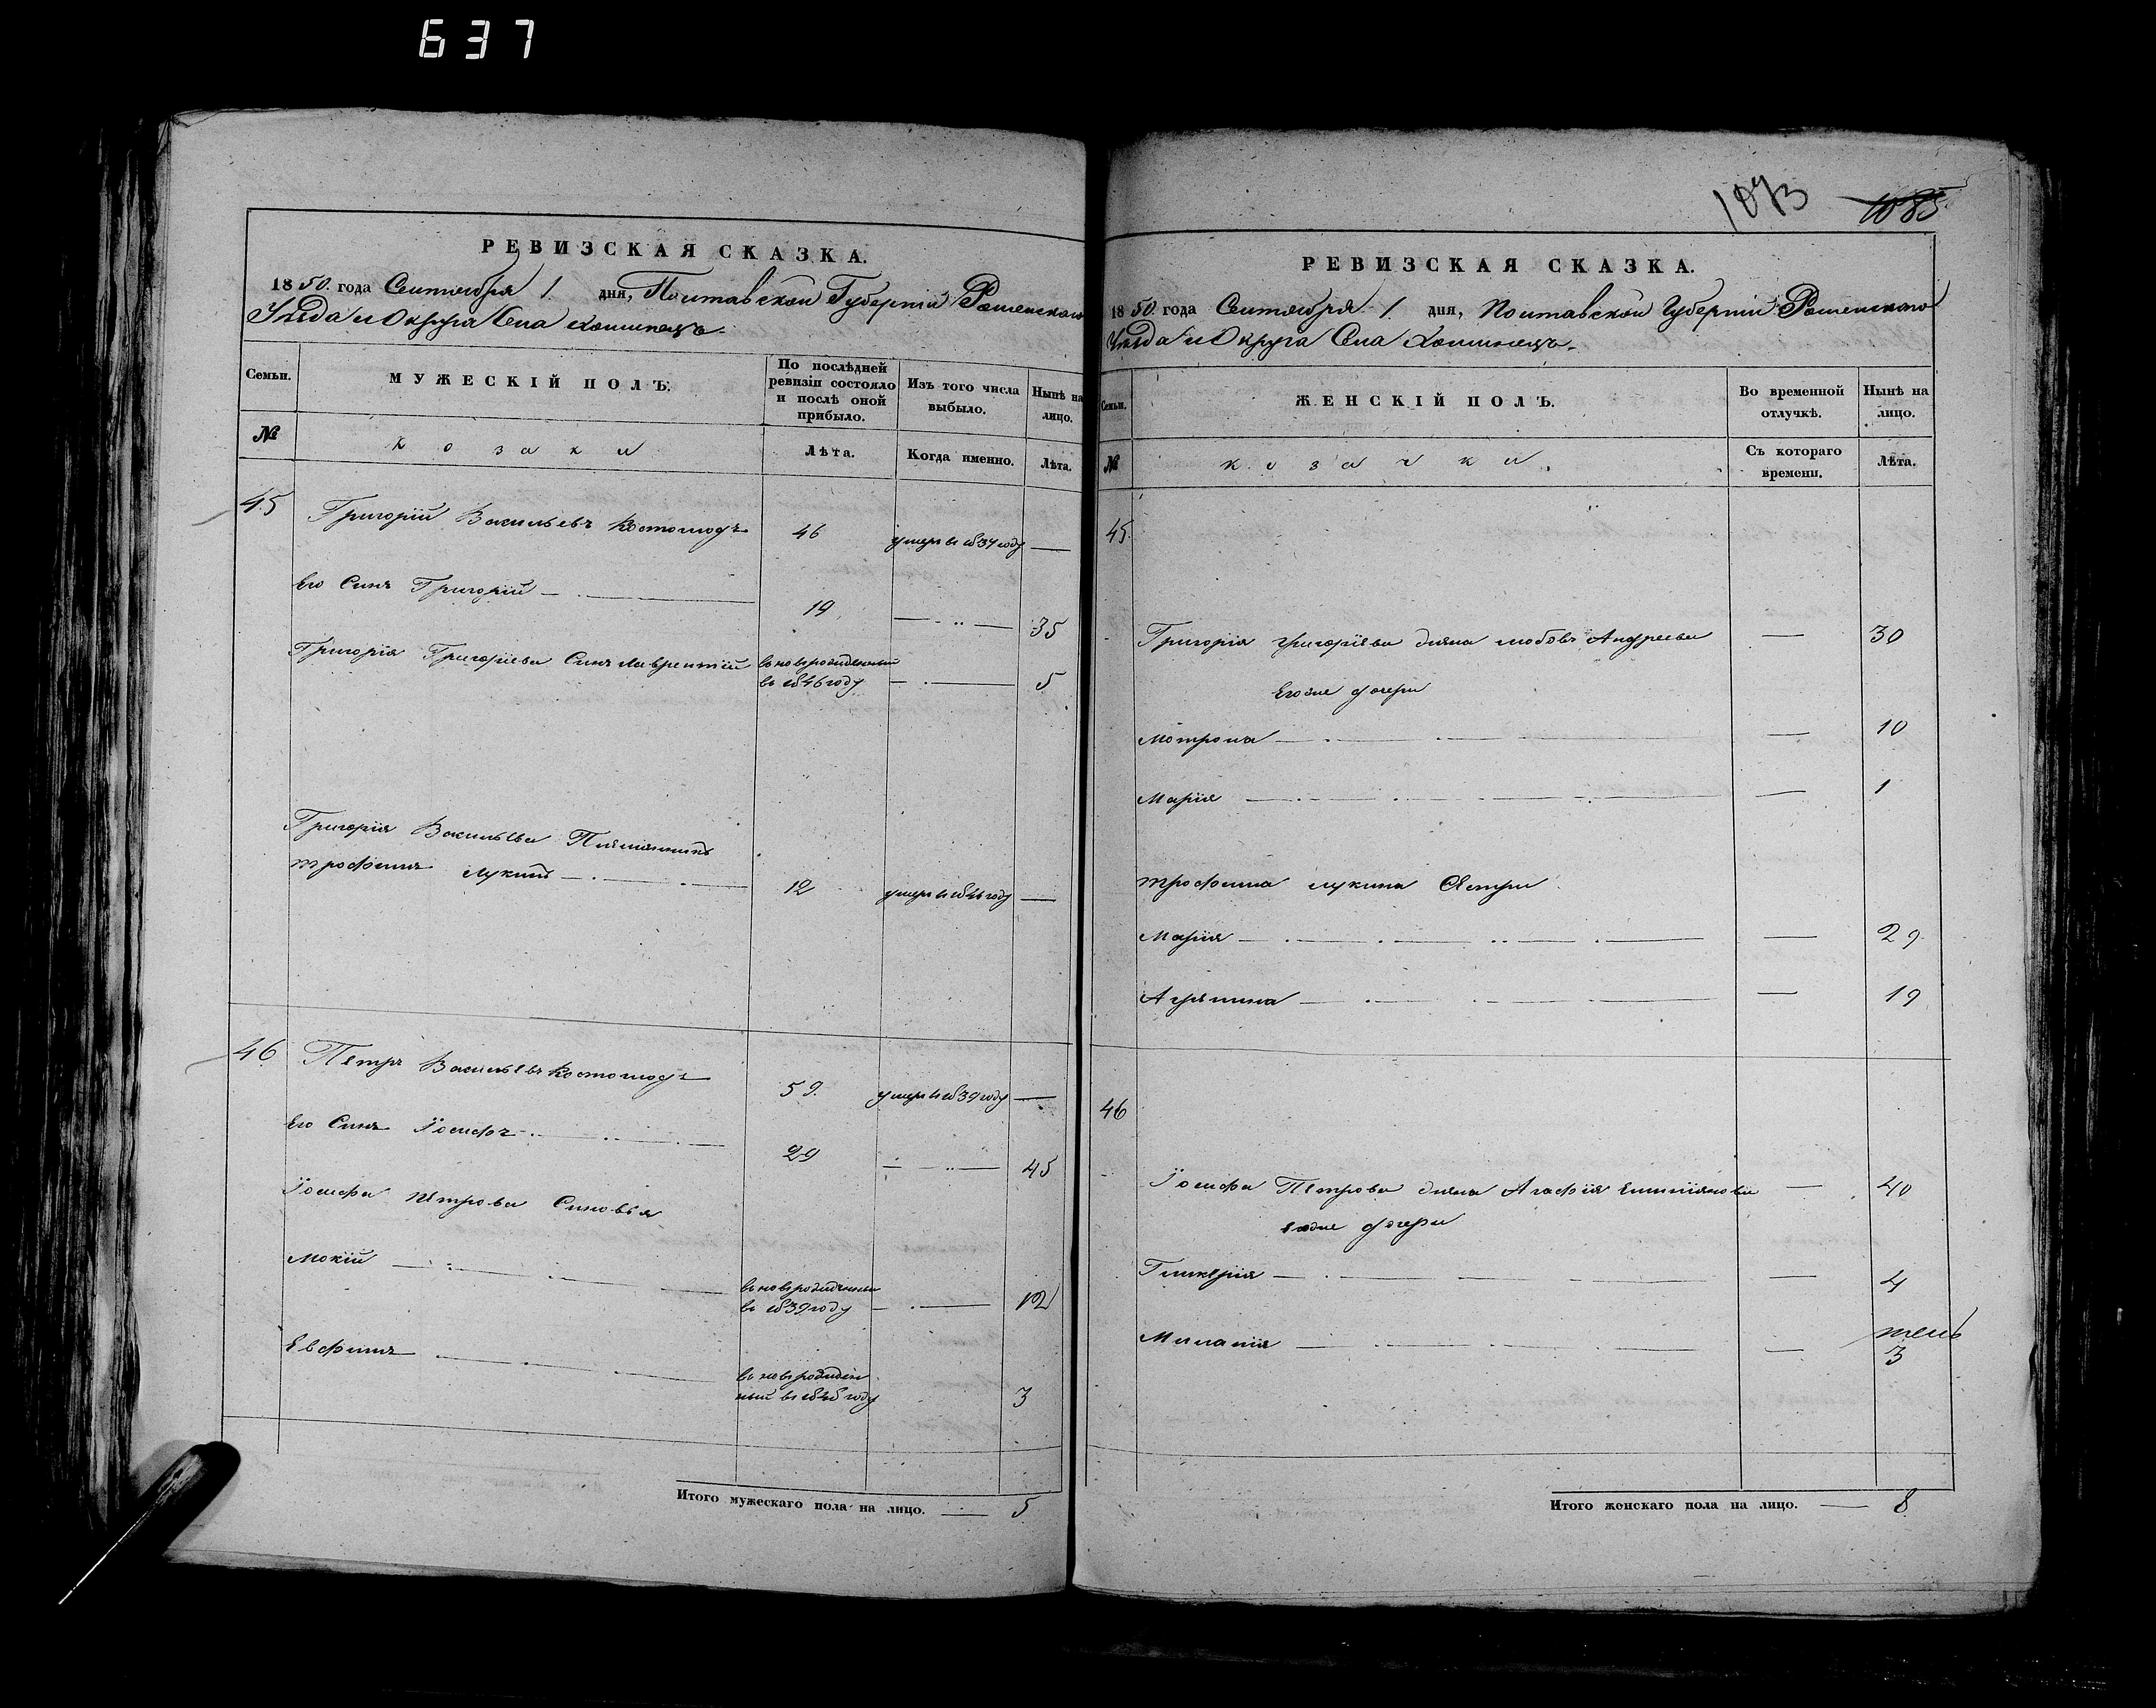 637
РЕВИЗСКАЯ СКАЗКА.
1850. года Сентября 1. дня, Полтавской Губерніи Роменскаго
Уезда и Округа Села
Семьи.
МУЖЕСКІЙ ПОЛЪ.
По послѣдней ревизіи состояло и послѣ оной прибыло.
Изъ того числа выбыло.
Нынѣ на лицо.
№
козаки
Лѣта.
Когда именно.
Лѣта.
45 Григорій Васильевъ 46 умеръ въ 1834 году —
Его Синъ Григорій — 19 — 35
Григорія Григоріева Синъ Лаврентій вновърожденный
въ 1846 году — 5
Григорія Васильева Племянникъ
трофимъ лукинъ — 12 умеръ въ 1846 году —
46 Петръ Васильевъ 59. умеръ въ 1839 году —
Его Синъ Іосифъ — 29 — 45
Іосифа Петрова Синовья
Мокій — вновърожденный
въ 1839 году — 12
Евфимъ — вновърожден
ный въ 1848 году 3
Итого мужескаго пола на лицо. — 5
1073 1085
РЕВИЗСКАЯ СКАЗКА.
1850. года Сентября 1. дня, Полтавской Губерніи Роменскаго
Уезда и Округа Села
Семьи.
ЖЕНСКІЙ ПОЛЪ.
Во временной отлучкѣ.
Нынѣ на лицо.
№
козачки.
Съ котораго времени.
Лѣта.
45.
Григорія григоріева жена любовъ Андреева — 30
Егоже дочери
Мотрона — 10
Марія — 1
трофима лукина Сестри
Марія — 29
Агрепина — 19
46
Іосифа Петрова жена Агафія Емиліянова — 40
Егоже дочери
Гликерія — 4
Миланія — 3
Итого женскаго пола на лицо. — 8